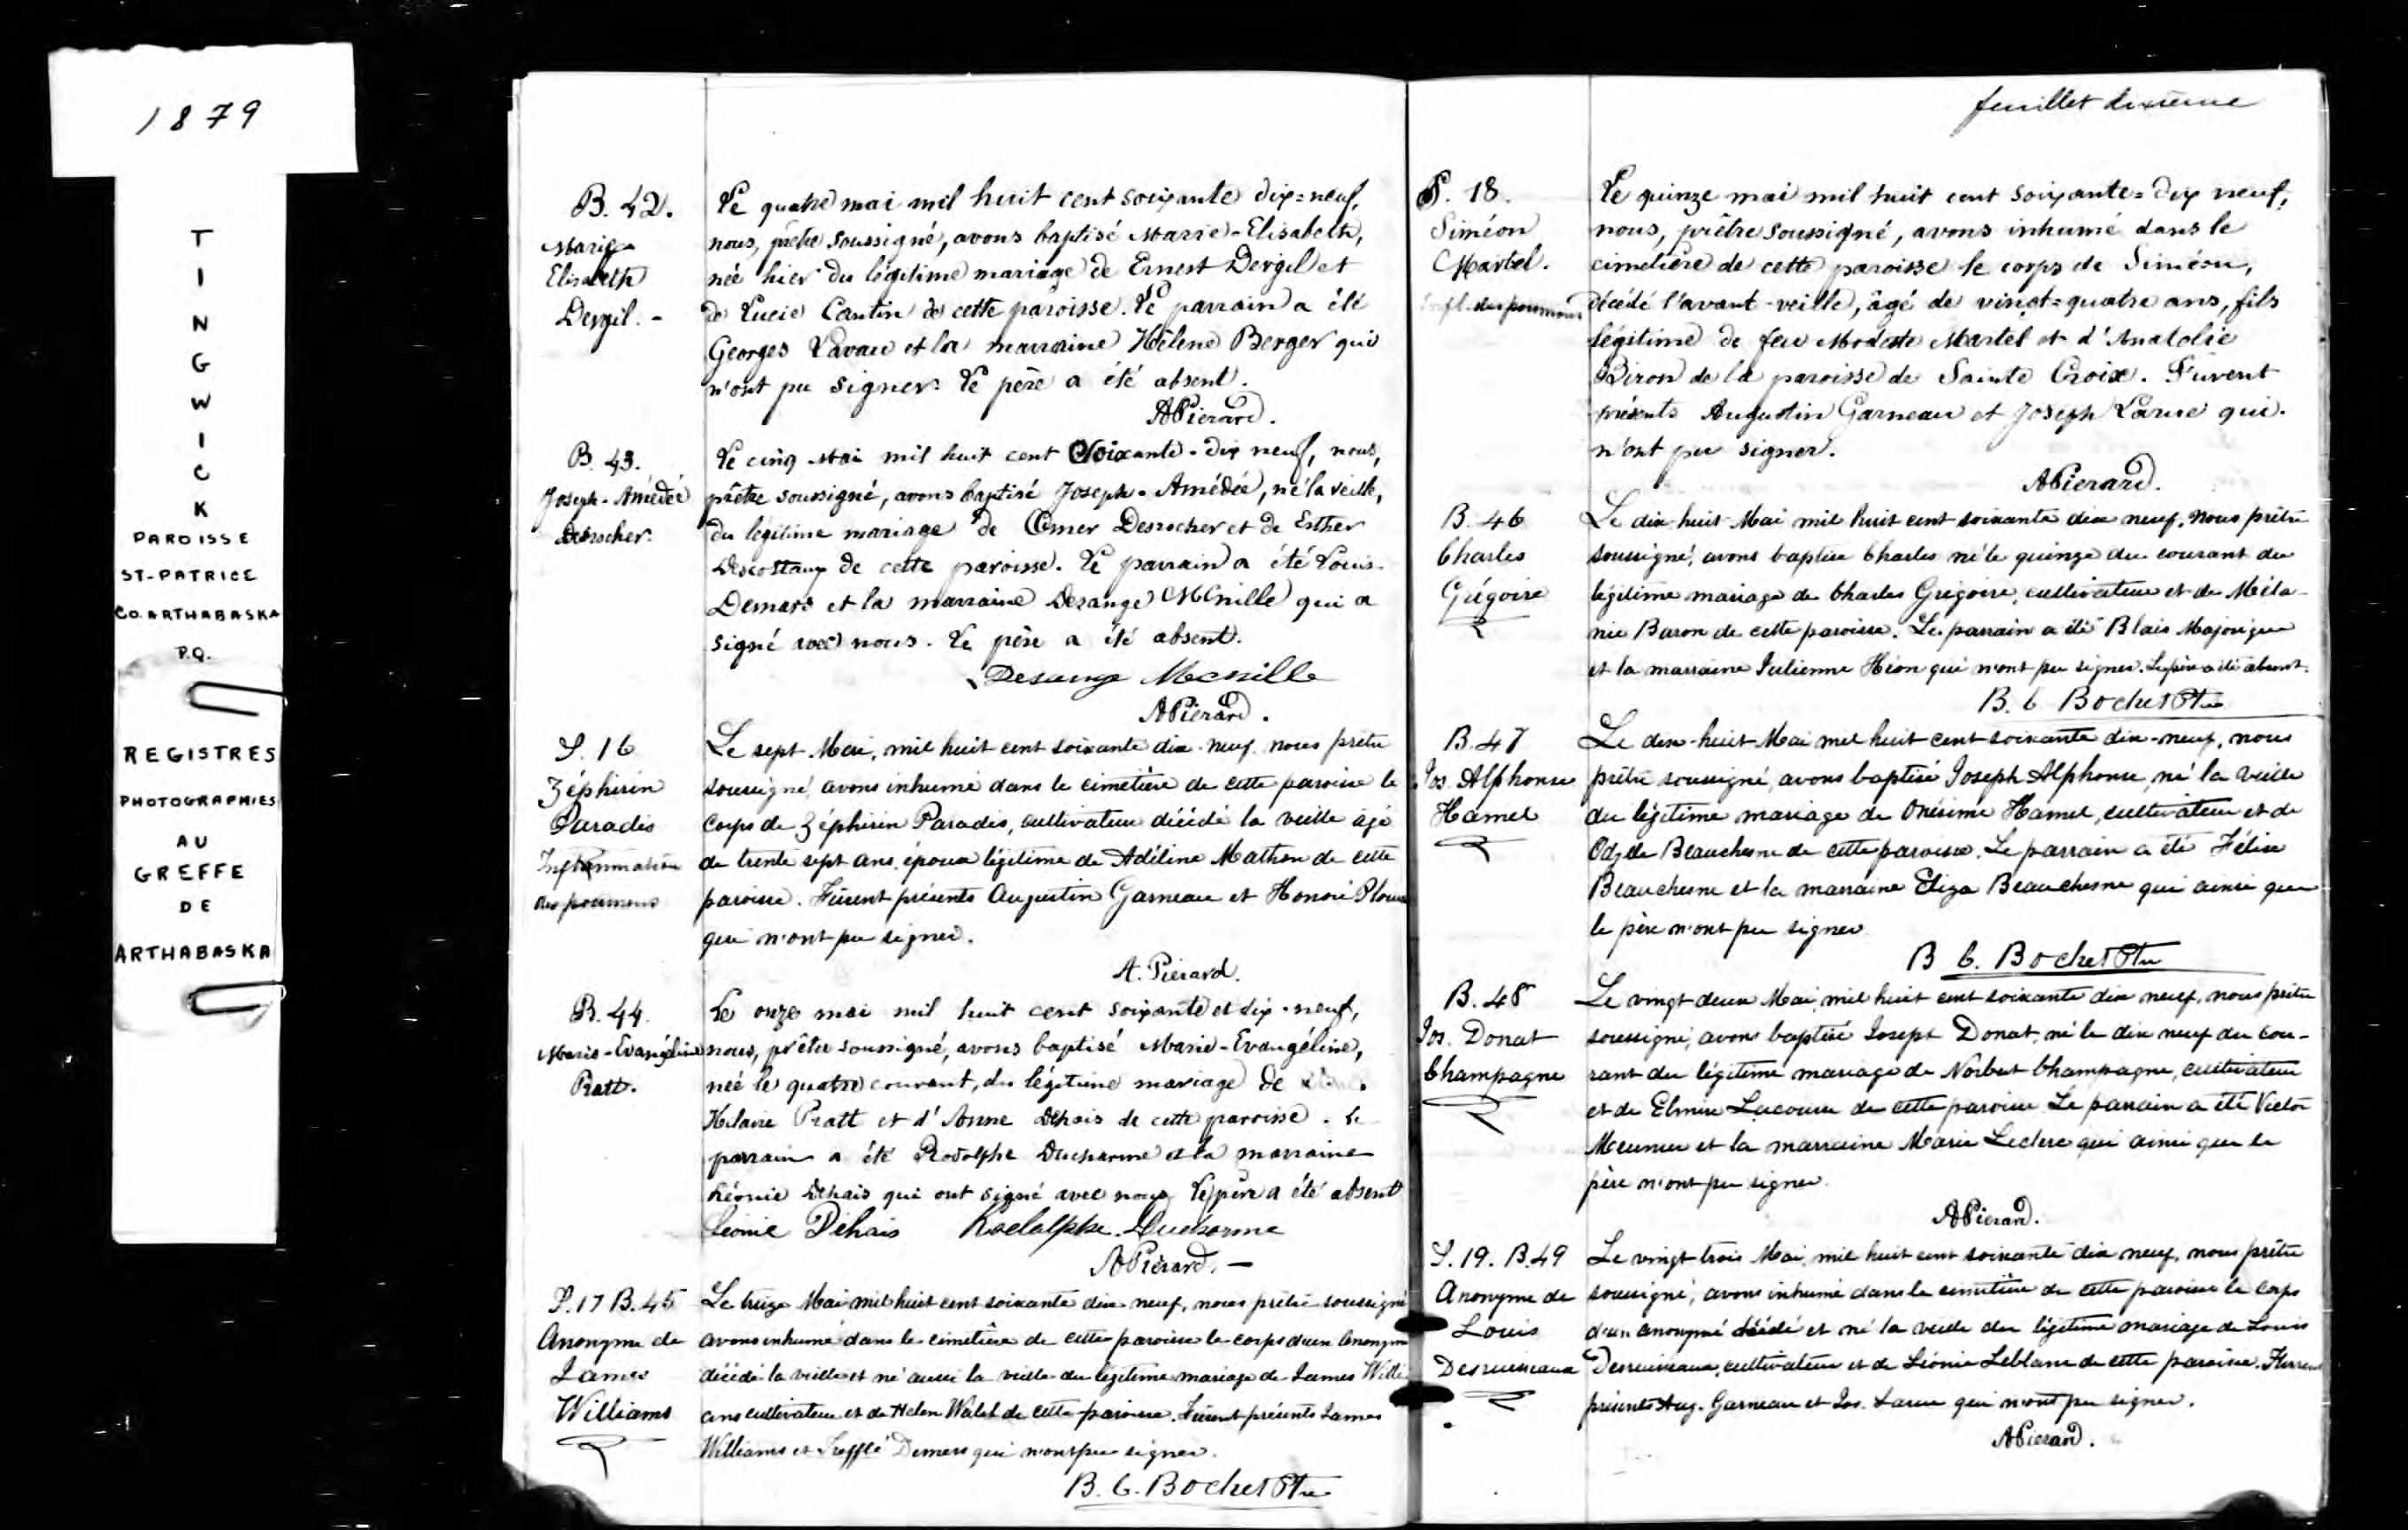 1879
T
I
N
G
W
I
C
K
PAROISSE
ST-PATRICE
CO. ARTHABASKA
P.Q.
REGISTRES
PHOTOGRAPHIES
AU
GREFFE
DE
ARTHABASKA
B. 42.
Marie
Elisabeth
Dergil. -
Le quatre mai mil huit cent soixante dix=neuf,
nous, prêtre soussigné, avons baptisé Marie-Elisabeth,
née hier du légitime mariage de Ernest Dergil et
de Lucie Cantin de cette paroisse. Le parrain a été
Georges Lavau et la marraine Hélène Berger qui
n'ont pu signer. Le père a été absent.
APiérard.
B. 43.
Joseph-Amédée
Desrocher.
Le cinq Mai mil huit cent Soixante-dix neuf, nous,
prêtre soussigné, avons baptisé Joseph-Amédée, né la veille,
du légitime mariage de Omer Desrocher et de Esther
de cette paroisse. Le parrain a été Louis
Demars et la marraine Desange qui a
signé avec nous. Le père a été absent.
Desange
APiérard.
S. 16
Zéphirin
Paradis
Inflammation
des poumons
Le sept Mai, mil huit cent soixante dix-neuf nous prêtre
soussigné, avons inhumé dans le cimetière de cette paroisse le
corps de Zéphirin Paradis, cultivateur décédé la veille âgé
de trente sept ans, époux légitime de Adéline Mathon de cette
paroisse. Furent présents Augustin Garneau et Honoré
qui n'ont pu signer.
A. Piérard.
B. 44.
Marie-Evangéline
Pratt.
Le onze mai mil huit cent soixante et dix-neuf,
nous, prêtre soussigné, avons baptisé Marie-Evangéline,
née le quatre courant, du légitime mariage de
Hilaire Pratt et d'Anne Dehais de cette paroisse. Le
parrain a été Rodolphe Ducharme et la marraine
Léonie Dehais qui ont signé avec nous. Le père a été absent
Léonie Dehais Rodolphe Ducharme
APiérard. -
S. 17 B. 45
Anonyme de
James
Williams
Le treize Mai mil huit cent soixante dix neuf, nous prêtre soussigné
avons inhumé dans le cimetière de cette paroisse le corps d'un Anonyme
décédé la veille et né aussi la veille du légitime mariage de James Willi
ams cultivateur et de Helen Walsh de cette paroisse. Furent présents James
Williams et Trefflé Demers qui n'ont pu signer.
B. C. Bochet Ptre
feuillet dixième
S. 18.
Siméon
Martel.
Infl. des poumons
Le quinze mai mil huit cent soixante=dix neuf,
nous, prêtre soussigné, avons inhumé dans le
cimetière de cette paroisse le corps de Siméon,
décédé l'avant-veille, âgé de vingt=quatre ans, fils
légitime de feu Modeste Martel et d'Anatolie
Biron de la paroisse de Sainte Croix. Furent
présents Augustin Garneau et Joseph Larue qui
n'ont pu signer.
APiérard.
B. 46
Charles
Grégoire
Le dix-huit Mai mil huit cent soixante dix neuf, nous prêtre
soussigné, avons baptisé Charles né le quinze du courant du
légitime mariage de Charles Grégoire, cultivateur et de Méla-
nie Baron de cette paroisse. Le parrain a été Blais Majorique
et la marraine Julienne Héon qui n'ont pu signer. Le père a été absent.
B. C Bochet Ptre
B. 47
Jos. Alphonse
Hamel
Le dix-huit Mai mil huit cent soixante dix-neuf, nous
prêtre soussigné, avons baptisé Joseph Alphonse, né la veille
du légitime mariage de Onésime Hamel, cultivateur et de
Beauchesne de cette paroisse. Le parrain a été Félix
Beauchesne et la marraine Eliza Beauchesne qui ainsi que
le père n'ont pu signer
B C. Bochet Ptre
B. 48
Jos. Donat
Champagne
Le vingt deux Mai, mil huit cent soixante dix neuf, nous prêtre
soussigné, avons baptisé Joseph Donat, né le dix neuf du cou-
rant du légitime mariage de Norbert Champagne, cultivateur
et de Elmire Lacourse de cette paroisse Le parrain a été Victor
Meunier et la marraine Marie Leclerc qui ainsi que le
père n'ont pu signer.
APiérard.
S. 19. B. 49
Anonyme de
Louis
Desruisseaux
Le vingt trois Mai, mil huit cent soixante dix neuf, nous prêtre
soussigné, avons inhumé dans le cimetière de cette paroisse le corps
d'un anonyme décédé et né la veille du légitime mariage de Louis
Desruisseaux, cultivateur et de Léonie Leblanc de cette paroisse. Furent
présents Aug. Garneau et Jos. Larue qui n'ont pu signer.
APiérard.